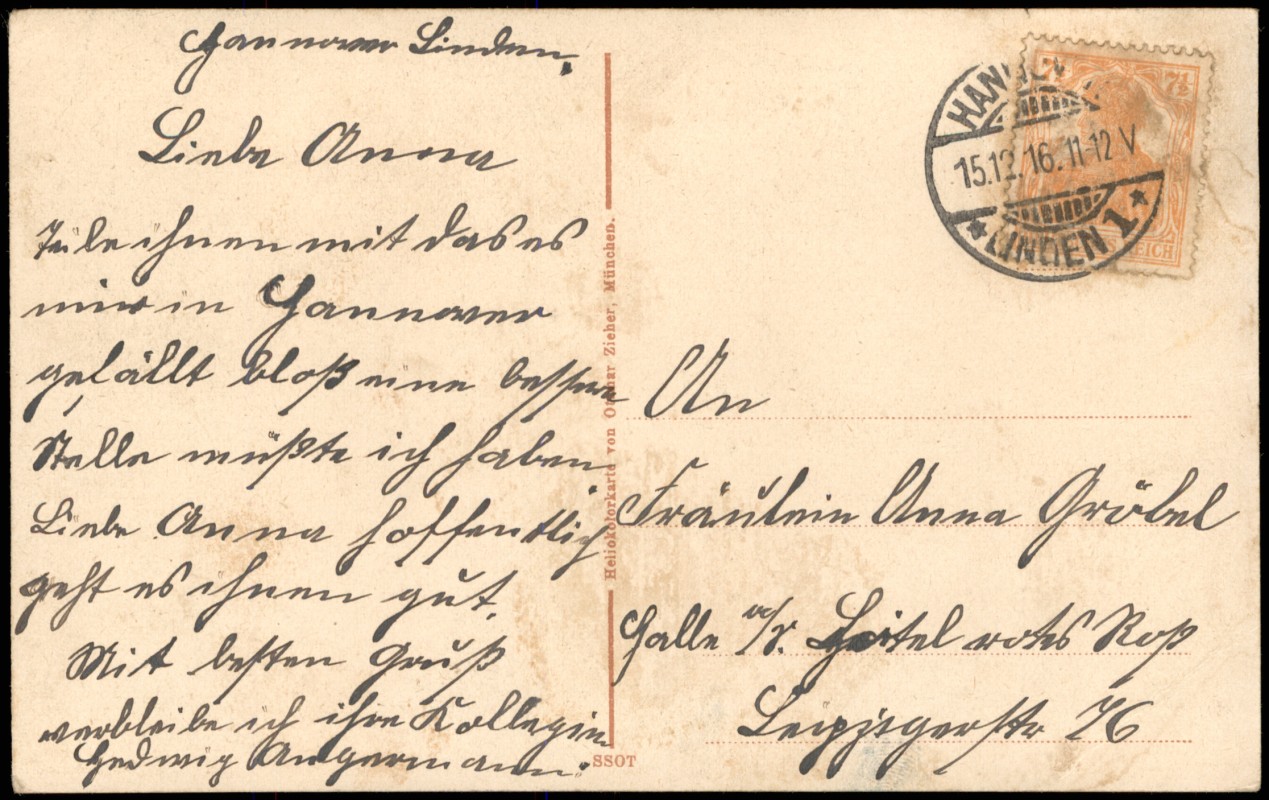 Hannover Linden,
Liebe Anna
Teile ihnen mit das es
mir in Hannover
gefällt bloß eine bessere
Stelle müßte ich haben
Liebe Anna hoffentlich
geht es ihnen gut.
Mit besten Gruß
verbleibe ich ihre Kollegin
Hedwig Angermann.
Heliokolorkarte von Ottmar Zieher, München.
SSOT
7½ 7½
HANNOVER
15.12.16.11-12 V
* LINDEN 1 *
REICH
An
Fräulein Anna Gröbel
Halle a/S. Hotel rotes Roß
Leipzigerstr 76